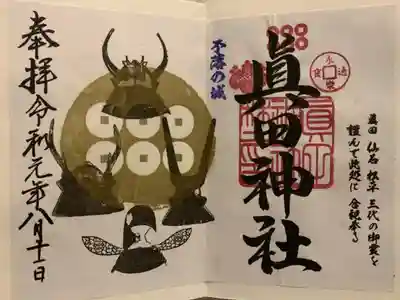 不落の城
眞田神社
真田 仙石 松平 三代の御霊を
謹んで此処に合祀奉る
奉拝 令和元年八月十一日